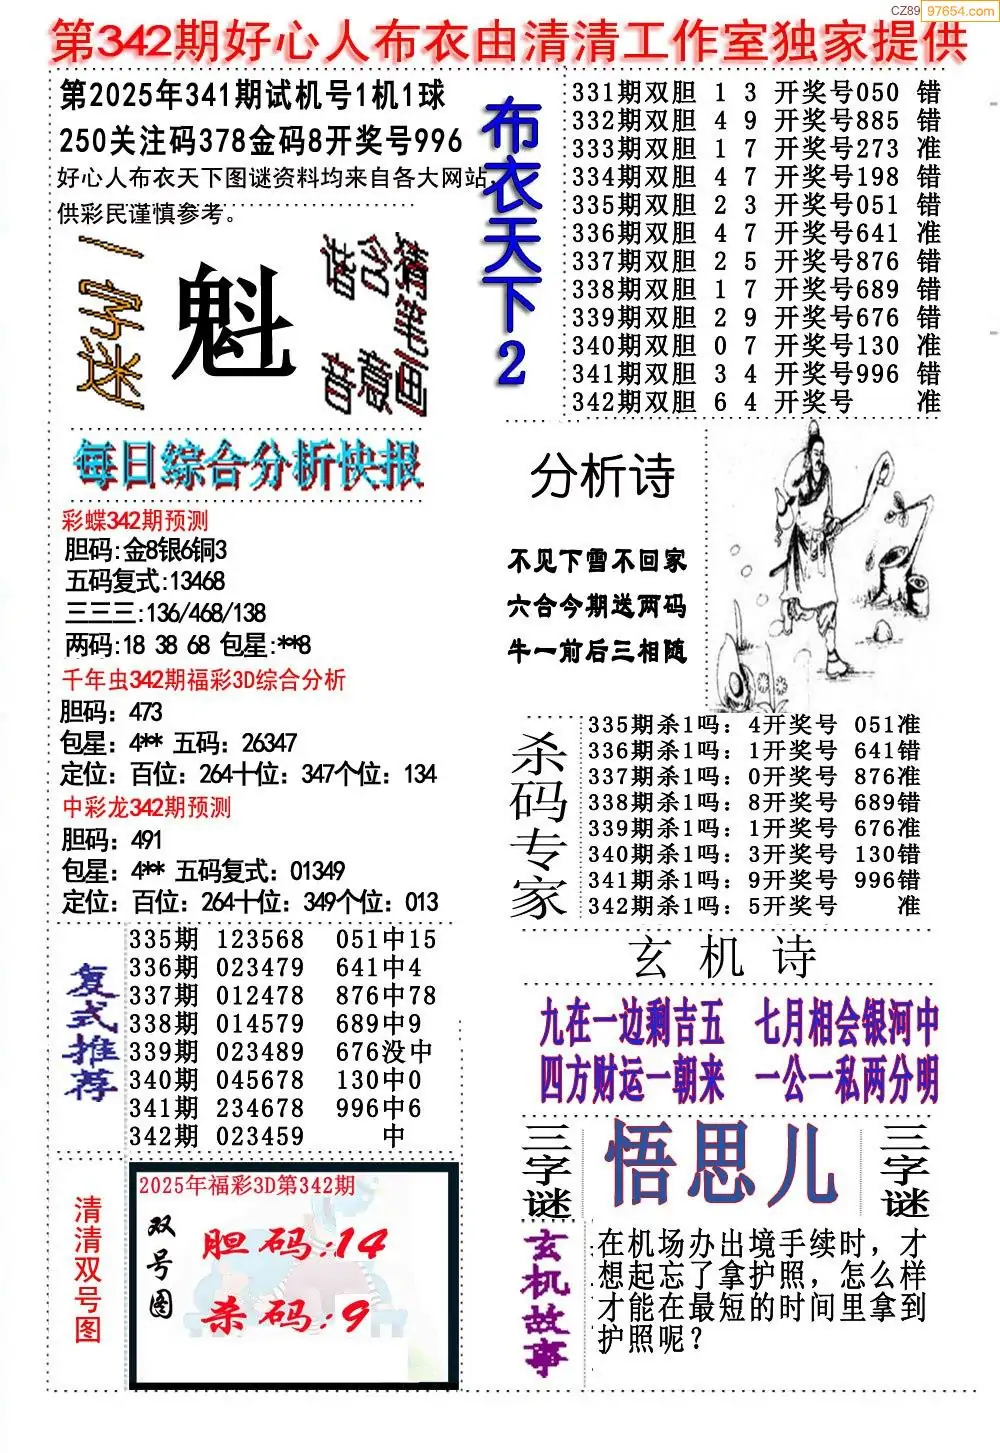 CZ89 97654.com
第342期好心人布衣由清清工作室独家提供
第2025年341期试机号1机1球
250关注码378金码8开奖号996
好心人布衣天下图谜资料均来自各大网站,
供彩民谨慎参考。
一字迷
魁
猜笔画
含意
谐音
布衣天下2
331期双胆 1 3 开奖号050 错
332期双胆 4 9 开奖号885 错
333期双胆 1 7 开奖号273 准
334期双胆 4 7 开奖号198 错
335期双胆 2 3 开奖号051 错
336期双胆 4 7 开奖号641 准
337期双胆 2 5 开奖号876 错
338期双胆 1 7 开奖号689 错
339期双胆 2 9 开奖号676 错
340期双胆 0 7 开奖号130 准
341期双胆 3 4 开奖号996 错
342期双胆 6 4 开奖号 准
每日综合分析快报
彩蝶342期预测
胆码:金8银6铜3
五码复式:13468
三三三:136/468/138
两码:18 38 68 包星:**8
千年虫342期福彩3D综合分析
胆码：473
包星：4** 五码：26347
定位：百位：264十位：347个位：134
中彩龙342期预测
胆码：491
包星：4** 五码复式：01349
定位：百位：264十位：349个位：013
分析诗
不见下雪不回家
六合今期送两码
牛一前后三相随
杀码专家
335期杀1吗：4开奖号 051准
336期杀1吗：1开奖号 641错
337期杀1吗：0开奖号 876准
338期杀1吗：8开奖号 689错
339期杀1吗：1开奖号 676准
340期杀1吗：3开奖号 130错
341期杀1吗：9开奖号 996错
342期杀1吗：5开奖号 准
复式推荐
335期 123568 051中15
336期 023479 641中4
337期 012478 876中78
338期 014579 689中9
339期 023489 676没中
340期 045678 130中0
341期 234678 996中6
342期 023459 中
玄机诗
九在一边剩吉五 七月相会银河中
四方财运一朝来 一公一私两分明
三字谜
悟思儿
三字谜
清清双号图
2025年福彩3D第342期
双号图
胆码:14
杀码:9
玄机故事
在机场办出境手续时，才
想起忘了拿护照，怎么样
才能在最短的时间里拿到
护照呢？